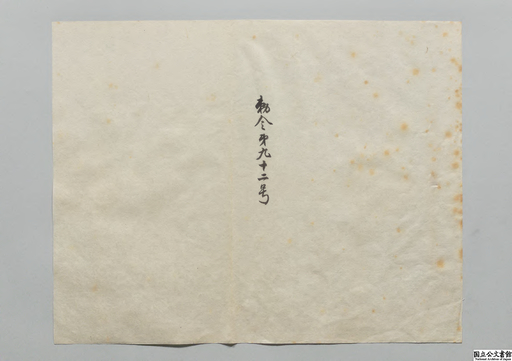 勅令第九十二号
国立公文書館
National Archives of Japan